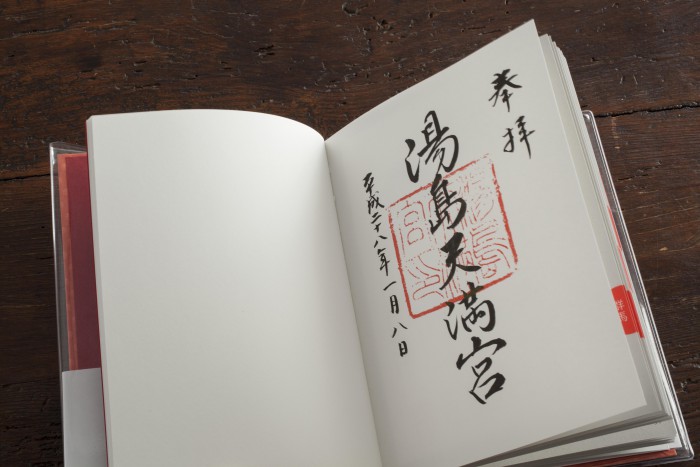 奉拝
湯島天満宮
平成二十八年一月八日